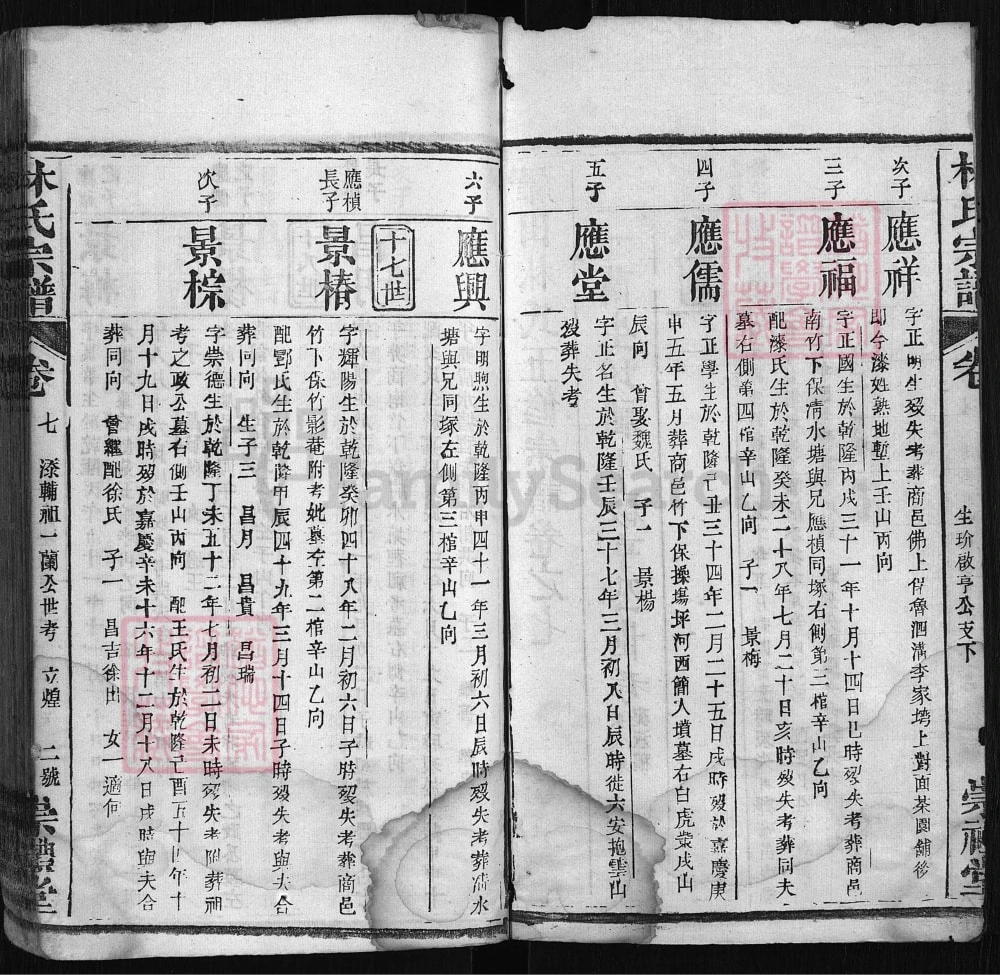 林氏宗譜 卷
生玠啟亨公支下
崇禮堂
次子
應祥
字正明生歿失考葬商邑佛上保魯泗溝李家塆上對面茶園舖後
即今漆姓熟地暫上壬山丙向
三子
應福
字正國生於乾隆丙戌三十一年十月十四日巳時歿失考葬商邑
南竹下保清水塘與兄應楨同塚右側第三棺辛山乙向
配漆氏生於乾隆癸未二十八年七月二十日亥時歿失考葬同夫
墓右側第四棺辛山乙向 子一 景梅
四子
應儒
字正學生於乾隆己丑三十四年二月二十五日戌時歿於嘉慶庚
申五年五月葬商邑竹下保操塲坪河西簡人墳墓右白虎業戌山
辰向 曾娶魏氏 子一 景楊
五子
應堂
字正名生於乾隆壬辰三十七年三月初八日辰時徙六安抱雲山
歿葬失考
六子
應興
字明煦生於乾隆丙申四十一年三月初六日辰時歿失考葬清水
塘與兄同塚左側第三棺辛山乙向
十七世
應楨
長子
景椿
字輝陽生於乾隆癸卯四十八年二月初六日子時歿失考葬商邑
竹下保竹影菴附考妣墓左第二棺辛山乙向
配鄷氏生於乾隆甲辰四十九年三月十四日子時歿失考與夫合
葬同向 生子三 昌月 昌貴 昌瑞
次子
景棕
字崇德生於乾隆丁未五十二年七月初二日未時歿失考附葬祖
考之政公墓右側壬山丙向 配王氏生於乾隆己酉五十四年十
月十九日戌時歿於嘉慶辛未十六年十二月十八日戌時與夫合
葬同向 曾繼配徐氏 子一 昌吉徐出 女一適何
林氏宗譜 卷 七 漆輔祖一蘭公世考 立煌 二號 崇禮堂
FamilySearch